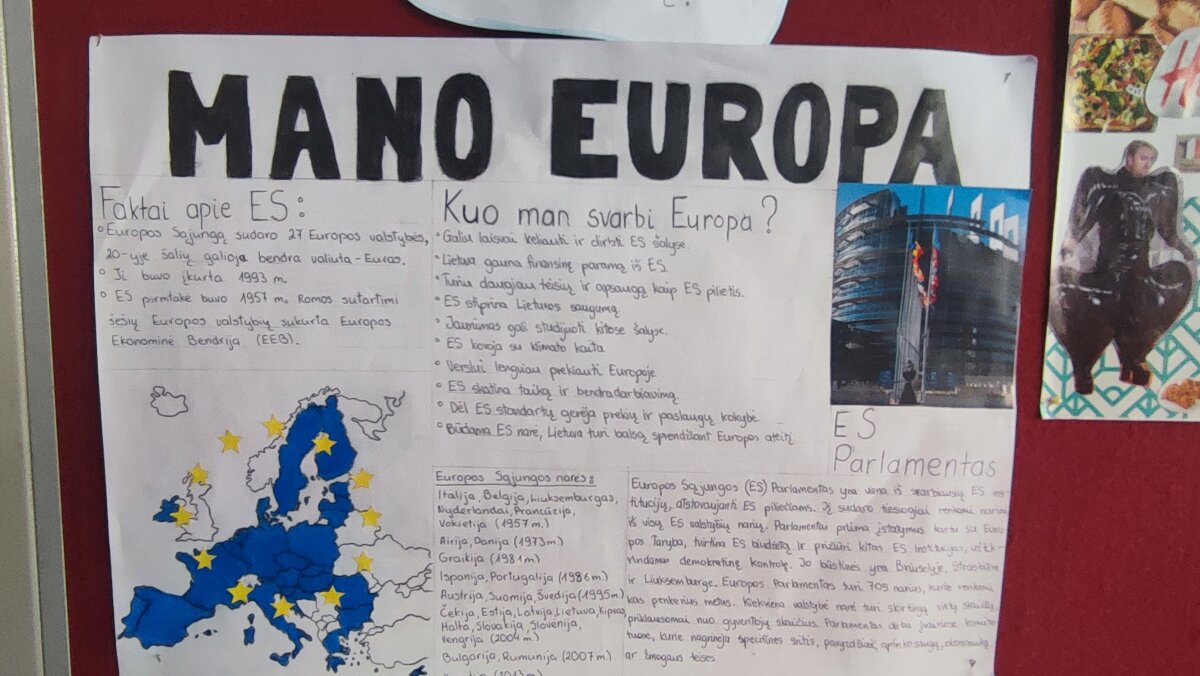 MANO EUROPA
Faktai apie ES:
Europos Sąjungą sudaro 27 Europos valstybės,
20-yje šalių galioja bendra valiuta - Euras.
Ji buvo įkurta 1993 m.
ES pirmtakė buvo 1957 m. Romos sutartimi
šešių Europos valstybių sukurta Europos
Ekonominė Bendrija (EEB).
Kuo man svarbi Europa?
Galiu laisvai keliauti ir dirbti ES šalyse.
Lietuva gauna finansinę paramą iš ES.
Turiu daugiau teisių ir apsaugą kaip ES pilietis.
ES stiprina Lietuvos saugumą
Jaunimas gali studijuoti kitose šalyse.
ES kovoja su klimato kaita
Verslui lengviau prekiauti Europoje.
ES skatina taiką ir bendradarbiavimą
Dėl ES standartų gerėja prekių ir paslaugų kokybė.
Būdama ES narė, Lietuva turi balsą sprendžiant Europos ateitį.
ES
Parlamentas
Europos Sąjungos narės:
Italija, Belgija, Liuksemburgas,
Nyderlandai, Prancūzija,
Vokietija (1957 m.)
Airija, Danija (1973m)
Graikija (1981 m)
Ispanija, Portugalija (1986 m)
Austrija, Suomija, Švedija (1995m)
Čekija, Estija, Latvija, Lietuva, Kipras
Malta, Slovakija, Slovėnija,
Vengrija (2004 m)
Bulgarija, Rumunija (2007 m)
Europos Sąjungos (ES) Parlamentas yra viena iš svarbiausių ES ins-
titucijų, atstovaujanti ES piliečiams. Jį sudaro tiesiogiai renkami nariai
iš visų ES valstybių narių. Parlamentas priima įstatymus kartu su Euro
pos Taryba, tvirtina ES biudžetą ir prižiūri kitas ES institucijas, užtik-
rindamas demokratinę kontrolę. Jo būstinės yra Briuselyje, Strasbūre
ir Liuksemburge. Europos Parlamentas turi 705 narius, kurie renkami
kas penkerius metus. Kiekviena valstybė narė turi skirtingą vietų skaičių,
priklausomai nuo gyventojų skaičiaus. Parlamentas dirba įvairiose komite
tuose, kurie nagrinėja specifines sritis, pavyzdžiui, aplinkosaugą, ekonomiką
ar žmogaus teises